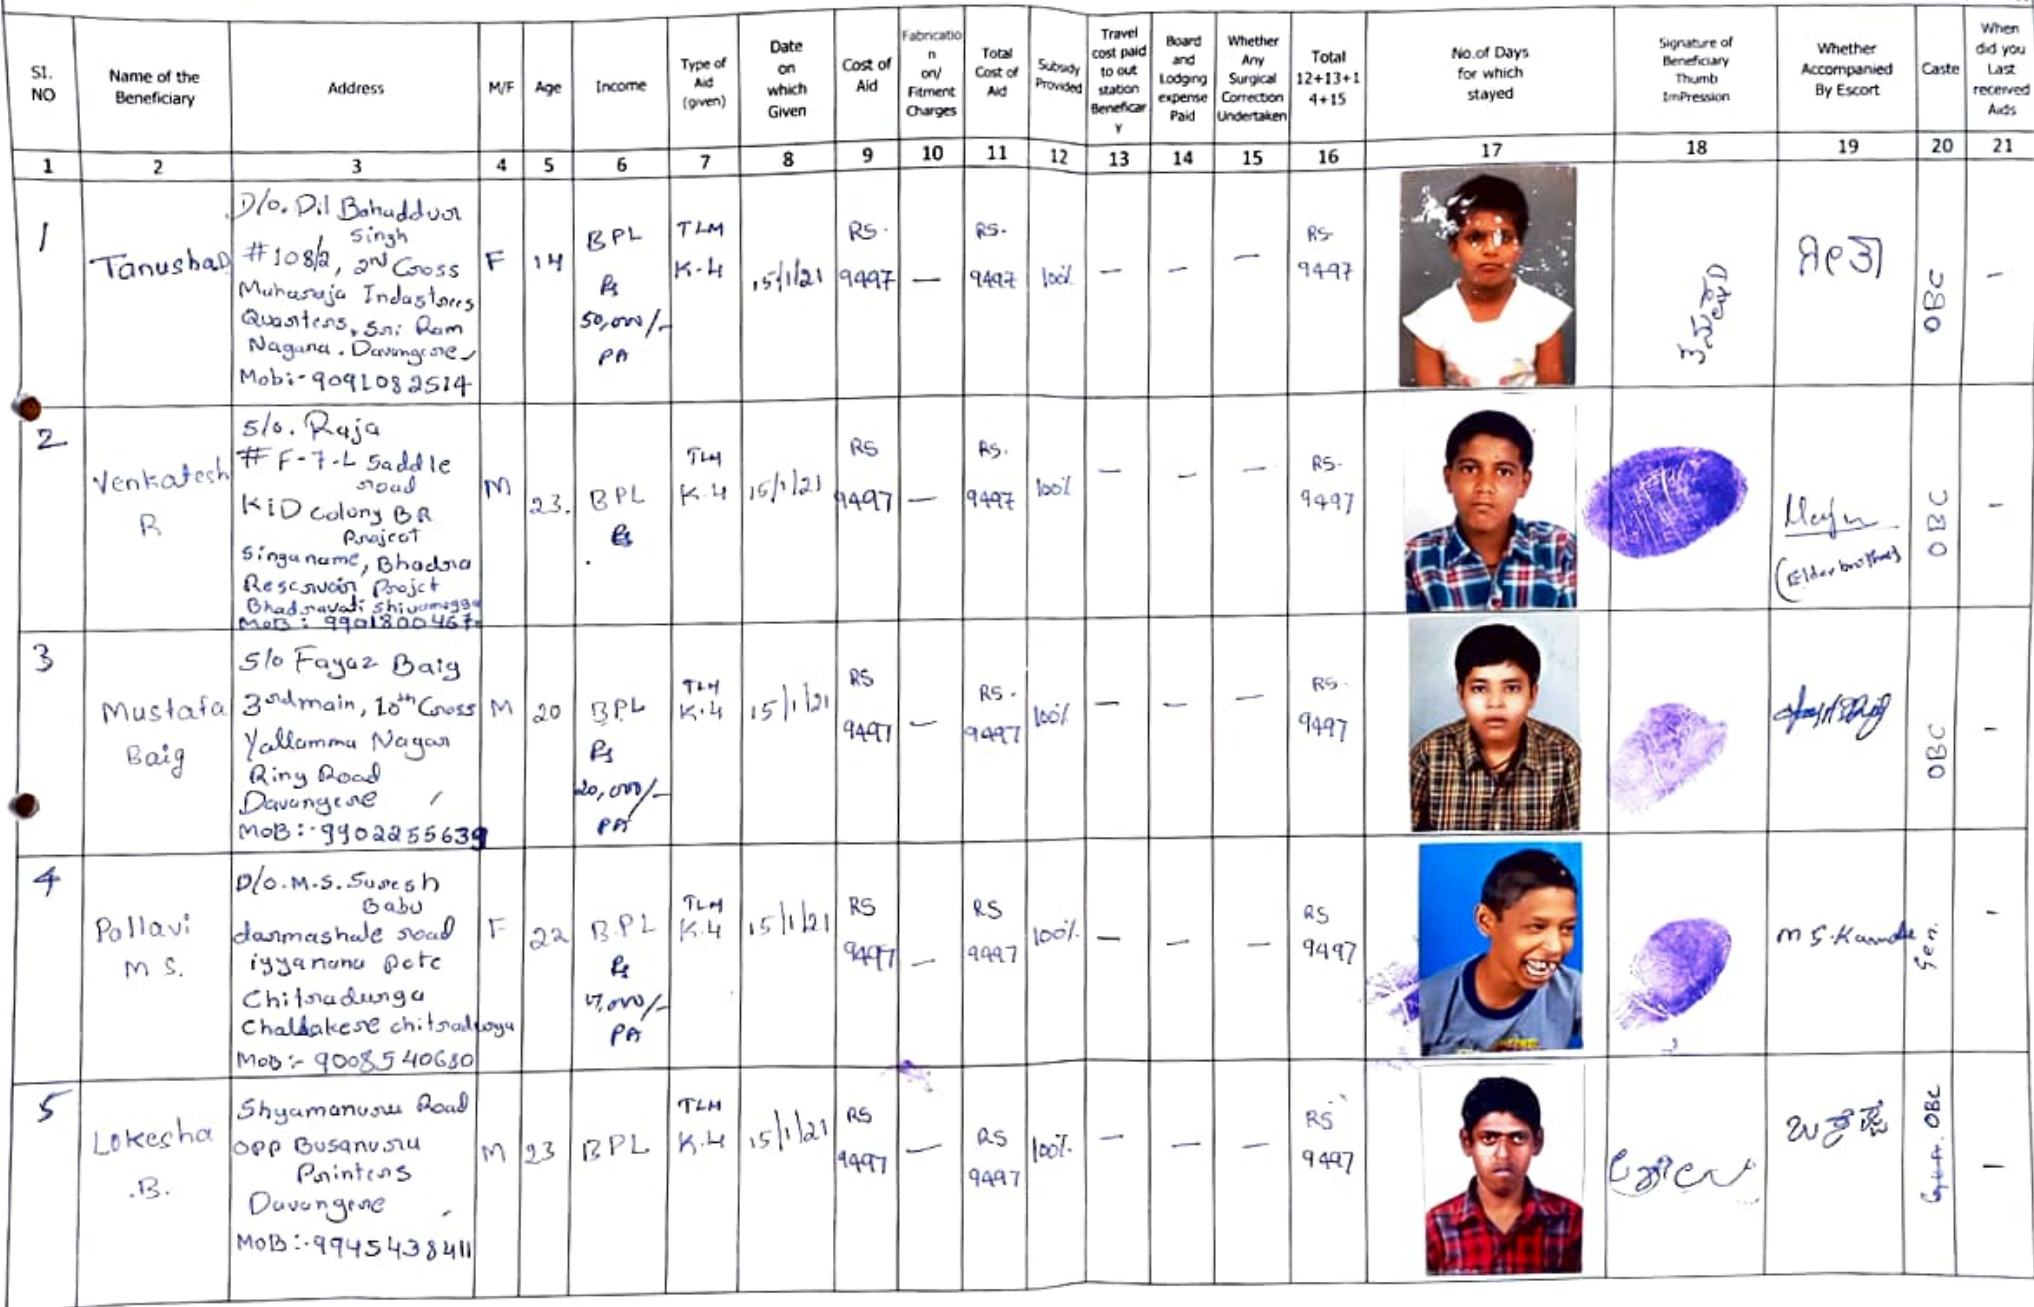 Sl. NO
Name of the Beneficiary
Address
M/F
Age
Income
Type of Aid (given)
Date on which Given
Cost of Aid
Fabricatio n on/ Fitment Charges
Total Cost of Aid
Subsidy Provided
Travel cost paid to out station Beneficar y
Board and Lodging expense Paid
Whether Any Surgical Correction Undertaken
Total 12+13+1 4+15
No.of Days for which stayed
Signature of Beneficiary Thumb ImPression
Whether Accompanied By Escort
Caste
When did you Last received Aids
1 2 3 4 5 6 7 8 9 10 11 12 13 14 15 16 17 18 19 20 21
1
Tanushad
D/o. Dil Bahaddur
Singh
# 108/2, 2nd Cross
Maharaja Industries
Quarters, Sri Ram
Nagara. Davangere
Mob:- 9091082514
F
14
BPL
Rs
50,000/-
PA
TLM
K-4
15/1/21
RS.
9497
—
RS.
9497
100%
—
—
—
RS-
9497
ತನುಷಾದ
ಗೀತಾ
OBC
-
2
Venkatesh
R
S/o. Raja
# F-7-L Saddle
road
KID colony BR
Project
Singaname, Bhadra
Reservoir Projct
Bhadravati Shivamogga
MoB: 9901800467
M
23.
BPL
Rs
TLM
K.4
15/1/21
RS
9497
—
RS.
9497
100%
—
—
—
RS.
9497
(Elder brother)
OBC
-
3
Mustafa
Baig
S/o Fayaz Baig
3rd main, 10th Cross
Yallamma Nagar
Ring Road
Davangere
MoB:-9902255639
M
20
BPL
Rs
20,000/-
PA
TLM
K.4
15/1/21
RS
9497
—
RS.
9497
100%
—
—
—
RS.
9497
OBC
-
4
Pallavi
M S.
D/o. M.S. Suresh
Babu
darmashale road
iyyanana pete
Chitradurga
Challakere chitradurga
MoB:- 9008540680
F
22
BPL
Rs
17,000/-
PA
TLM
K.4
15/1/21
RS
9497
—
RS
9497
100%.
—
—
—
RS
9497
Gen.
-
5
Lokesha
.B.
Shyamanuru Road
opp Busanuru
Printers
Davangere
MoB:-9945438411
M
23
BPL
TLM
K.4
15/1/21
RS
9497
—
RS
9497
100%.
—
—
—
RS
9497
OBC
—